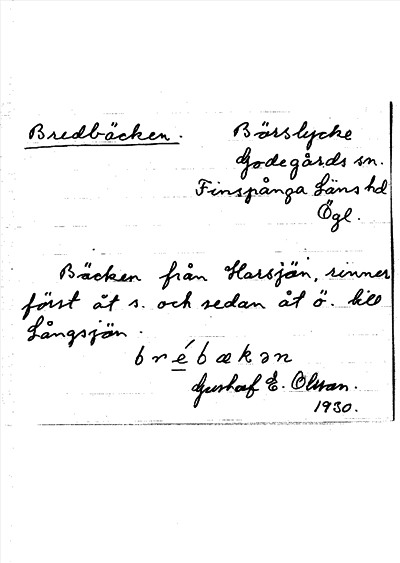 Bredbäcken. Börslycke
Godegårds sn.
Finspånga Läns hd
Ögl.
Bäcken från Harsjön, rinner
först åt s. och sedan åt ö. till
Långsjön.
brébækən
Gustaf E. Olsson.
1930.